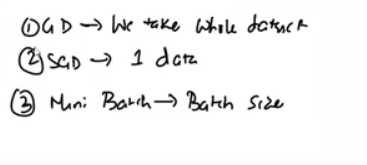 ① GD → We take whole dataset
② SGD → 1 data
③ Mini Batch → Batch size